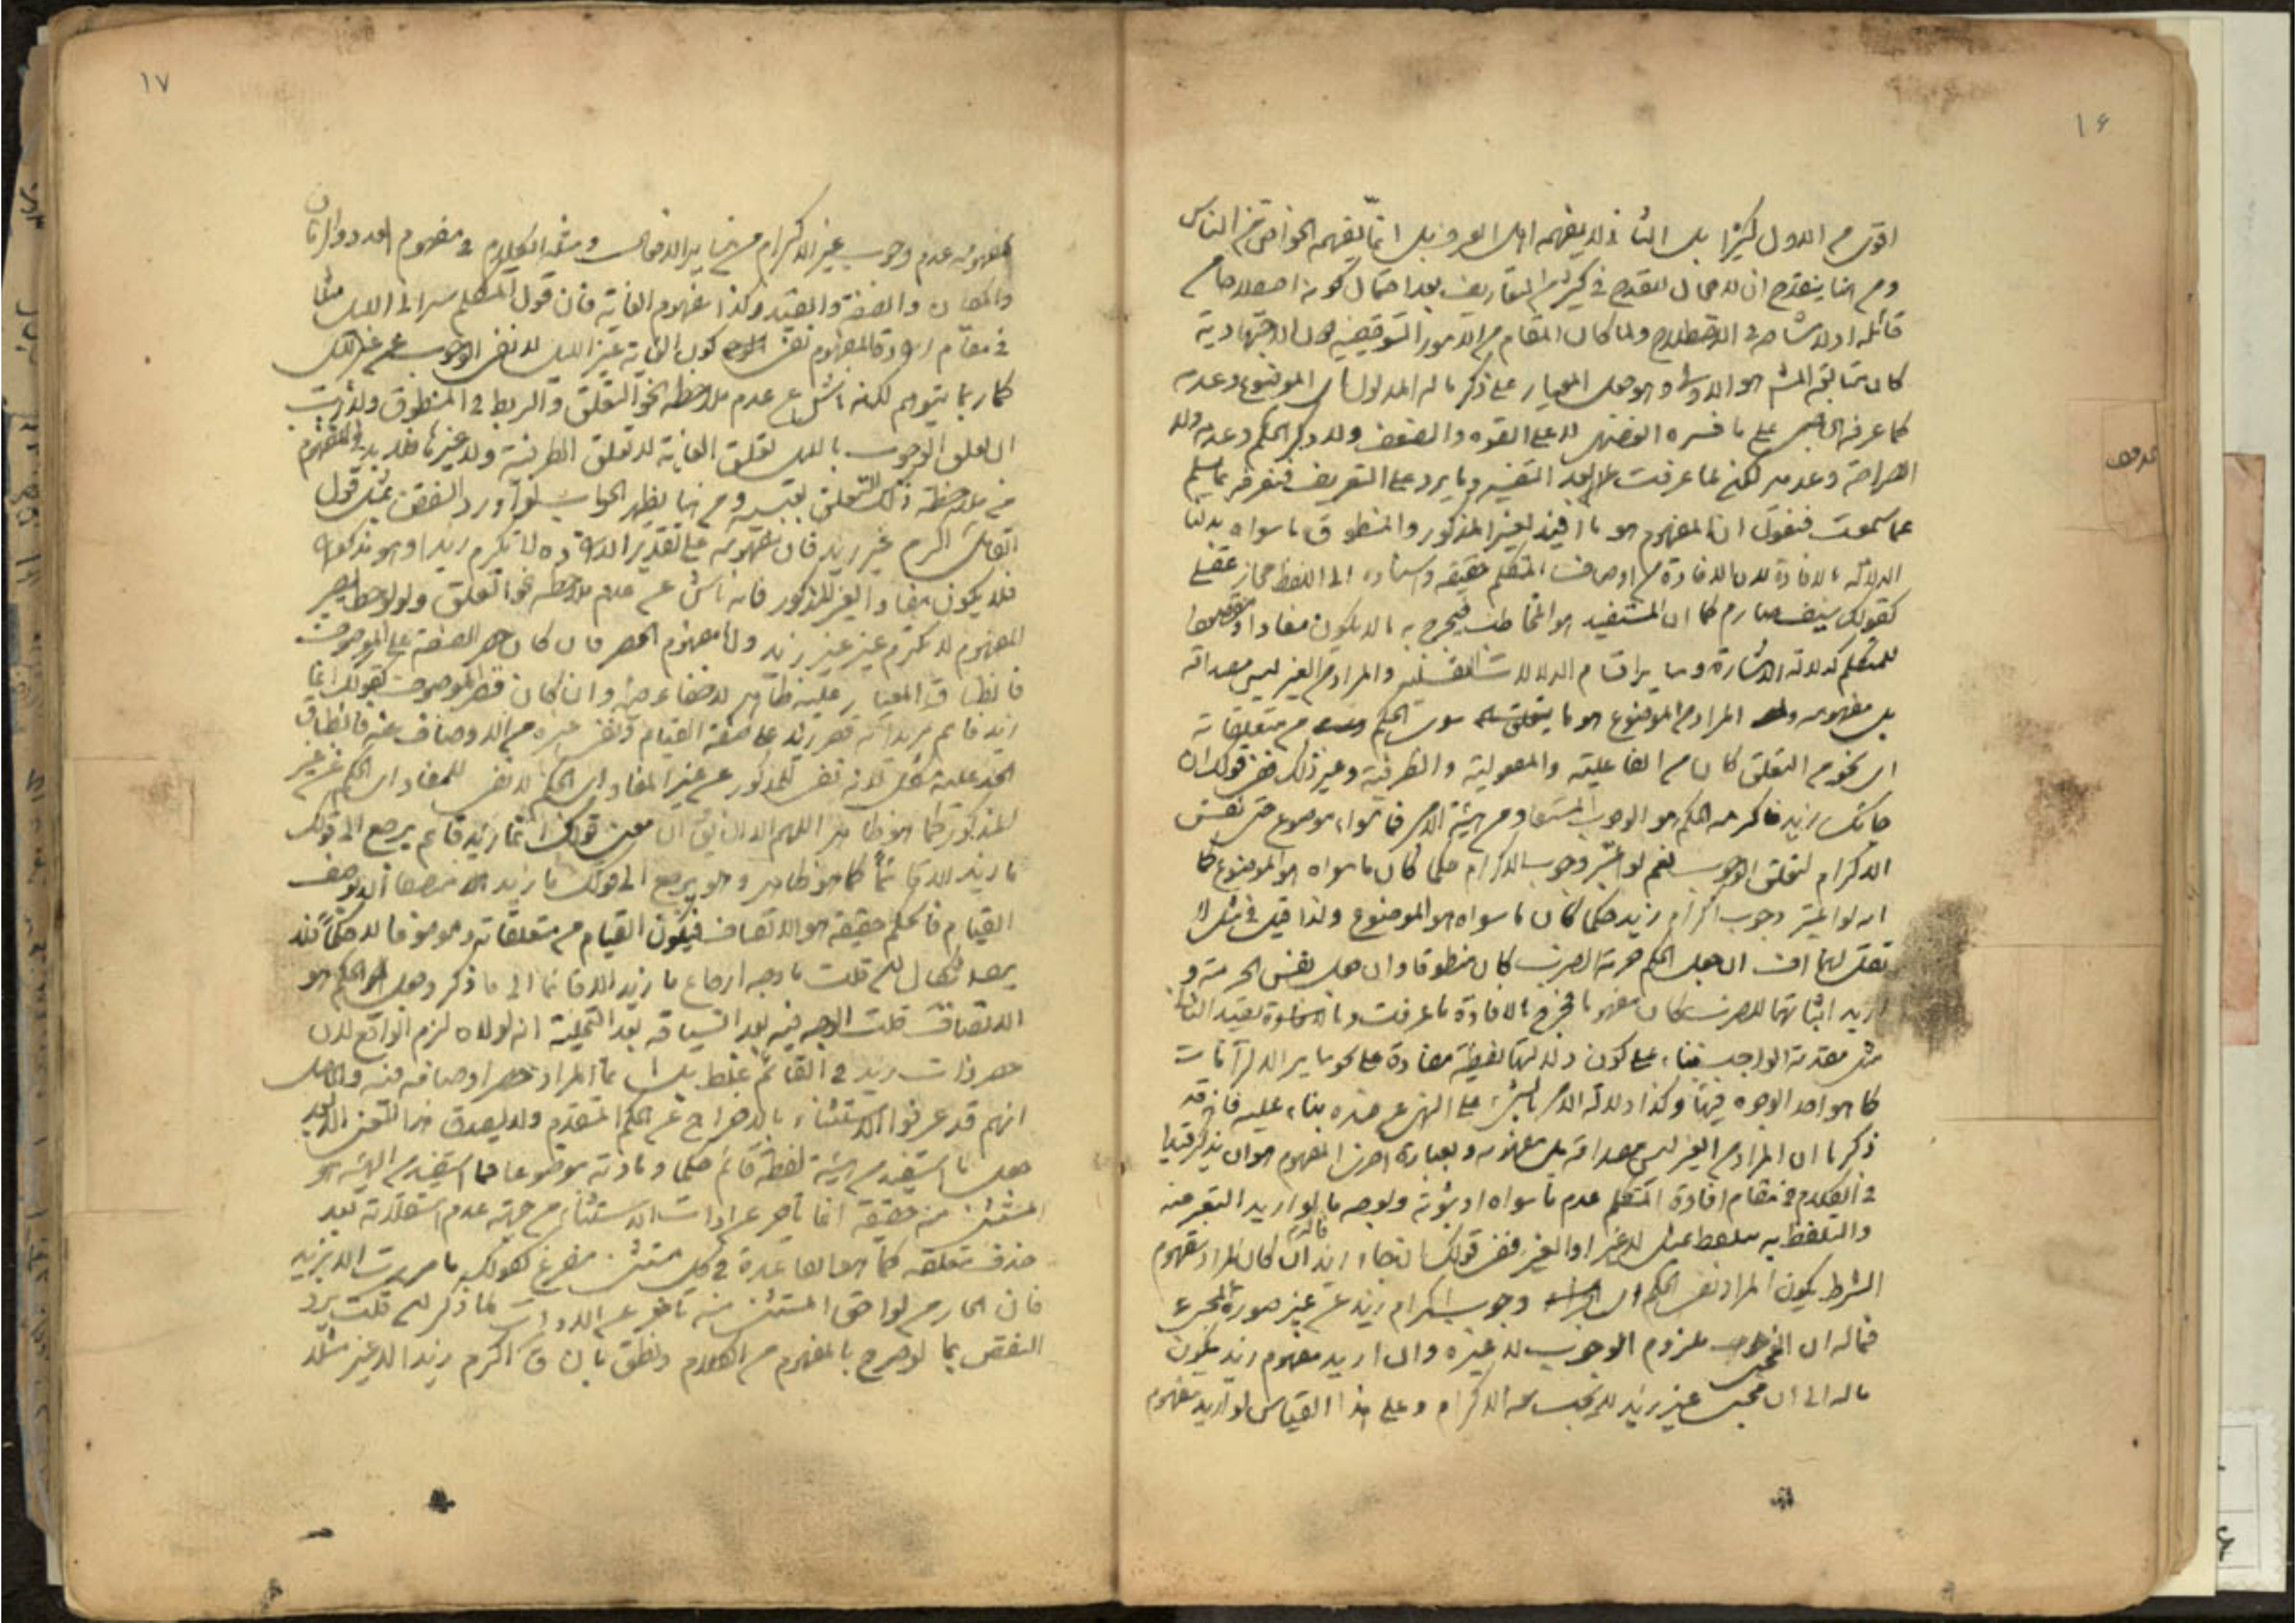 ۱۶
اقوى من الاول كثيرا بل الثانى لا يفهمه اهل العرف بل انما يفهمه الخواص من الناس
ومن هنا ينقدح ان لا مجال للقدح فى كثير من التعاريف بعد احتمال كونه اصطلاحا من
قائله اذ لا مشاحة فى الاصطلاح ولما كان المقام من الامور التوقيفية دون الاجتهادية
كان متابعة هو الاولى وهو جعل المعيار على ذكر ما له المدلول اى الموضوع وعدمه
كما عرفه الحاجبى على ما فسره العضدى لا على القوة والضعف ولا ذكر الحكم وعدمه ولا
الصراحة وعدمها لكن لما عرفت بعد التفسير وما يرد على التعريف فنعرفه بما يسلم
عما سمعت فنقول ان المفهوم هو ما افيد لغير المذكور والمنطوق ما سواه بدلنا
الدلالة بالافادة لان الافادة من اوصاف المتكلم حقيقة واسناده الى اللفظ مجاز عقلى
كقولك سيف صارم كما ان المستفيد هو المخاطب فيخرج به ما لا يكون مفادا ومقصودا
للمتكلم كدلالة الاشارة وساير اقسام الدلالات العقلية والمراد من الغير ليس مصداقه
بل مفهومه المراد من الموضوع هو ما سوى الحكم من متعلقاته
اى نحو من التعلق كان من الفاعلية والمفعولية والظرفية وغير ذلك ففى قولك ان
جائك زيد فاكرمه الحكم هو الوجوب المستفاد من هيئة الامر فما سواه موضوع حتى نفس
الاكرام لتعلق الوجوب نعم لو اعتبر وجوب الاكرام حكما كان ما سواه هو الموضوع كما
انه لو اعتبر وجوب اكرام زيد حكما كان ما سواه هو الموضوع ولذا قيل فى مثل لا
تقل لهما اف ان جعل الحكم حرمة الضرب كان منطوقا وان جعل نفس الحرمة و
اريد اثباتها للضرب كان مفهوما فخرج بالافادة ما عرفت
مثل مقدمة الواجب بناء على كون دلالتها لفظية مفادة على نحو ساير الالتزامات
كما هو احد الوجوه فيها وكذا دلالة الامر بالشىء على النهى عن ضده بناء عليه فانه قد
ذكرنا ان المراد من الغير ليس مصداقه بل مفهومه وبعبارة اخرى المفهوم هو ان يذكر قيدا
فى الكلام فى مقام افادة المتكلم عدم ما سواه او ثبوته ولوجه ما لو اريد التعبير عنه
والتلفظ به بلفظ مثل لا غير او الغير ففى قولك ان جاء زيد فاكرم ان كان المراد مفهوم
الشرط يكون المراد نفى الحكم اى وجوب اكرام زيد عن غير صورة المجىء
فماله ان المجىء ملزوم الوجوب لا غيره وان اريد مفهوم زيد يكون
ماله الى ان مجىء غير زيد لا يجب معه الاكرام وعلى هذا القياس لو اريد مفهوم
۱۷
مفهومه عدم وجوب غير الاكرام من ساير الافعال ومثله الكلام فى مفهوم العدد والزمان
والمكان والصفة والقيد وكذا مفهوم الغاية فان قول المتكلم سر الى الليل مثلا
فى مقام فالمفهوم نفى كون الغاية غير الليل لا نفى الوجوب عن غير الليل
كما ربما يتوهم لكنه ناش عن عدم ملاحظة نحو التعلق والربط فى المنطوق ولا ريب
ان تعلق الوجوب بالليل تعلق الغاية لا تعلق الظرفية ولا غيرها فلا بد فى المفهوم
من ملاحظة ذلك التعلق بعينه ومن هنا يظهر الجواب لو اورد النقض بمثل قول
القائل اكرم غير زيد فان مفهومه على تقدير الارادة لا تكرم زيدا وهو مذكور
فلا يكون مفادا لغير المذكور فانه ناش عن عدم ملاحظة نحو التعلق ولو لوحظ يصير
المفهوم لا تكرم غير غير زيد واما مفهوم الحصر فان كان حصر الصفة على الموصوف
فانطباق المعيار عليه ظاهر لا خفاء فيه وان كان قصر الموصوف كقولك انما
زيد قائم مريدا به قصر زيد على صفة القيام ونفى غيره من الاوصاف عنه فانطباق
الحد عليه مشكل لانه نفى للمذكور عن غير المفاد اى الحكم لا نفى للمفاد اى الحكم عن غير
المذكور كما هو ظاهر اللهم الا ان يق ان معنى قولك انما زيد قائم يرجع الى قولك
ما زيد الا قائما كما هو ظاهر وهو يرجع الى قولك ما زيد متصفا الا بوصف
القيام فالحكم حقيقة هو الاتصاف فيكون القيام من متعلقاته وموضوعا لا حكما
فان قلت ما وجه ارجاع ما زيد الا قائما الى ما ذكر وجعل الحكم هو
الاتصاف قلت الوجه فيه بعد انه لولاه لزم الواقع لان
حصر ذات زيد فى القائم غلط بل انما المراد حصر اوصافه فيه والحاصل
انهم قد عرفوا الاستثناء بالاخراج عن الحكم المتقدم ولا يصدق هذا المعنى الا بعد
جعل ما استفيد من هيئة لفظة قائم حكما ومادته موضوعا فما استفيد من الهيئة هو
المستثنى منه حقيقة انما تاخر عن ادات الاستثناء من جهة عدم استقلاله بعد
حذف متعلقه كما هو القاعدة فى كل مستثنى مفرغ كقولك ما مررت الا بزيد
فان الجار من لواحق المستثنى منه تاخر عن الادات لما ذكر فان قلت يرد
النقض بما لو صرح بالمفهوم من الكلام ونطق بان ق اكرم زيدا لا غير مثلا